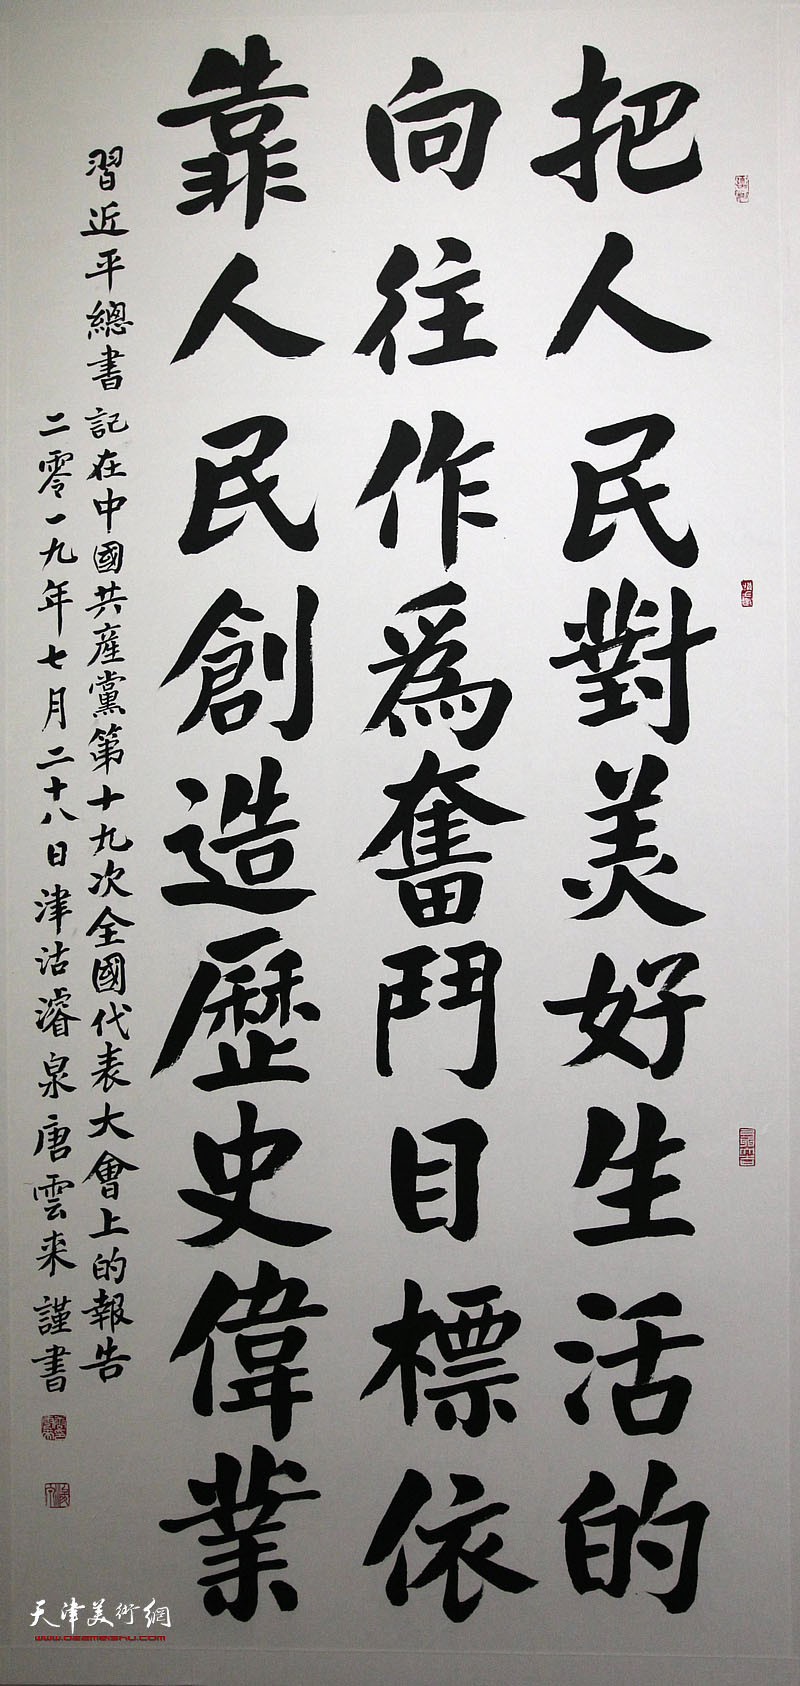 把人民對美好生活的
向往作爲奮鬥目標依
靠人民創造歷史偉業
習近平總書記在中國共產黨第十九次全國代表大會上的報告
二零一九年七月二十八日津沽濬泉唐雲来謹書
天津美術網
www.022meishu.com